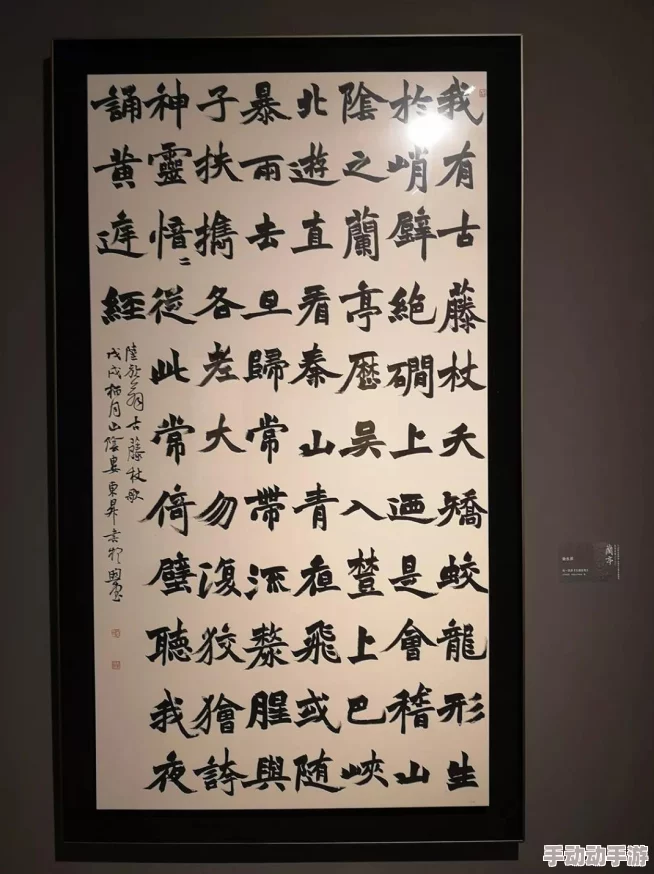 我有古藤杖夭矯蛟龍形生
於峭壁絕磵上迺是會稽山
陰之蘭亭歷吳入楚上巴峽
北遊直看秦山青夜飛或随
暴雨去旦歸常帶流漦腥與
子扶擕各老大勿復狡獪誇
神靈愔〻從此常倚壁聽我夜
誦黃庭經
陸放翁古藤杖歌
戊戌桺月山陰婁東昇書於
蘭亭
手动动手游